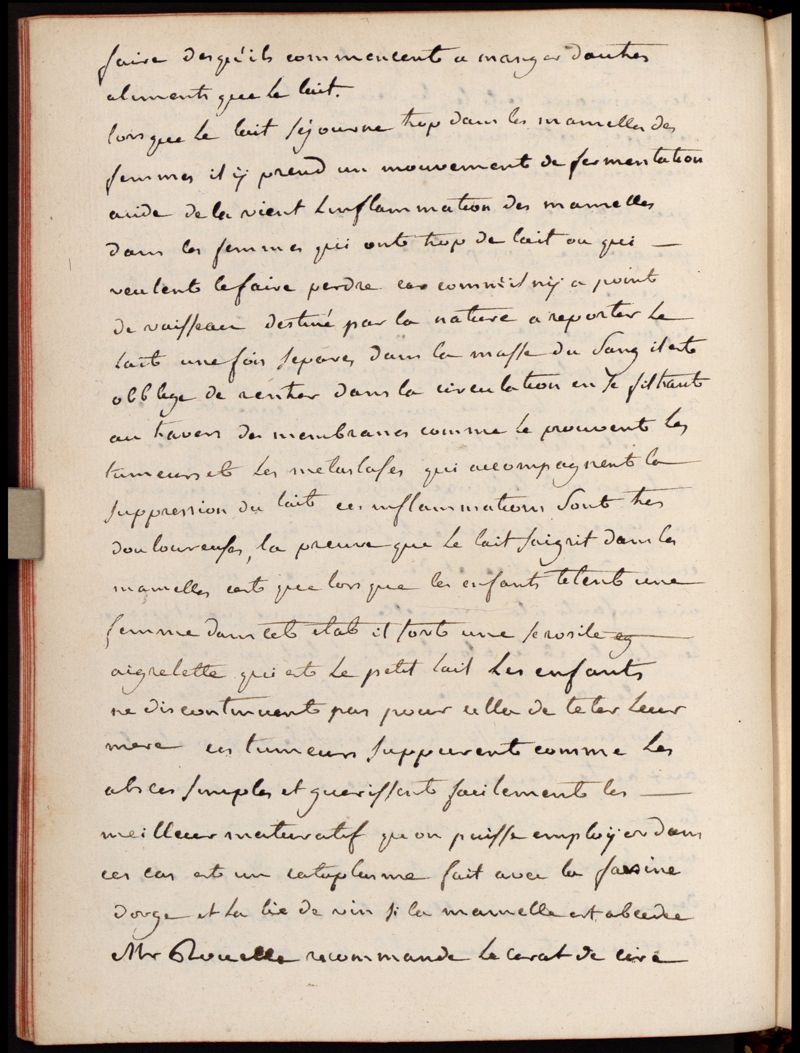 faire desqu'ils commencent a manger dautres
aliments que le lait.
lorsque le lait séjourne trop dans les mamelles des
femmes il ÿ prend un mouvement de fermentation
acide de la vient Linflammation des mamelles
dans les femmes qui onts trop de lait ou qui —
veulent le faire perdre car comme il nÿ a point
de vaisseau destiné par la nature a reporter Le
Lait une fois séparés dans la masse du Sang il ests
obblige de rentrer dans la circulation en se filtrants
au travers des membranes comme le prouvents les
tumeurs et Les metastases qui accompagnent la
suppression du laits ces inflammations Sont tres
douloureuses, la preuve que Le lait saigrit dans les
mamelles ests que lorsque les enfants tetent une
femme dans cet etat il sort une serosite
aigrelette qui ests Le petit lait Les enfants
ne discontinuents pas pour cella de teter Leur
mere ces tumeurs suppurent comme Les
abscès simples et guerissents facilements les —
meilleur maturatif quon puisse employer dans
ces cas est un cataplasme fait avec la farine
dorge et La lie de vin si la mamelle est abcedée
Mr Rouelle recommande Le cerat de cire